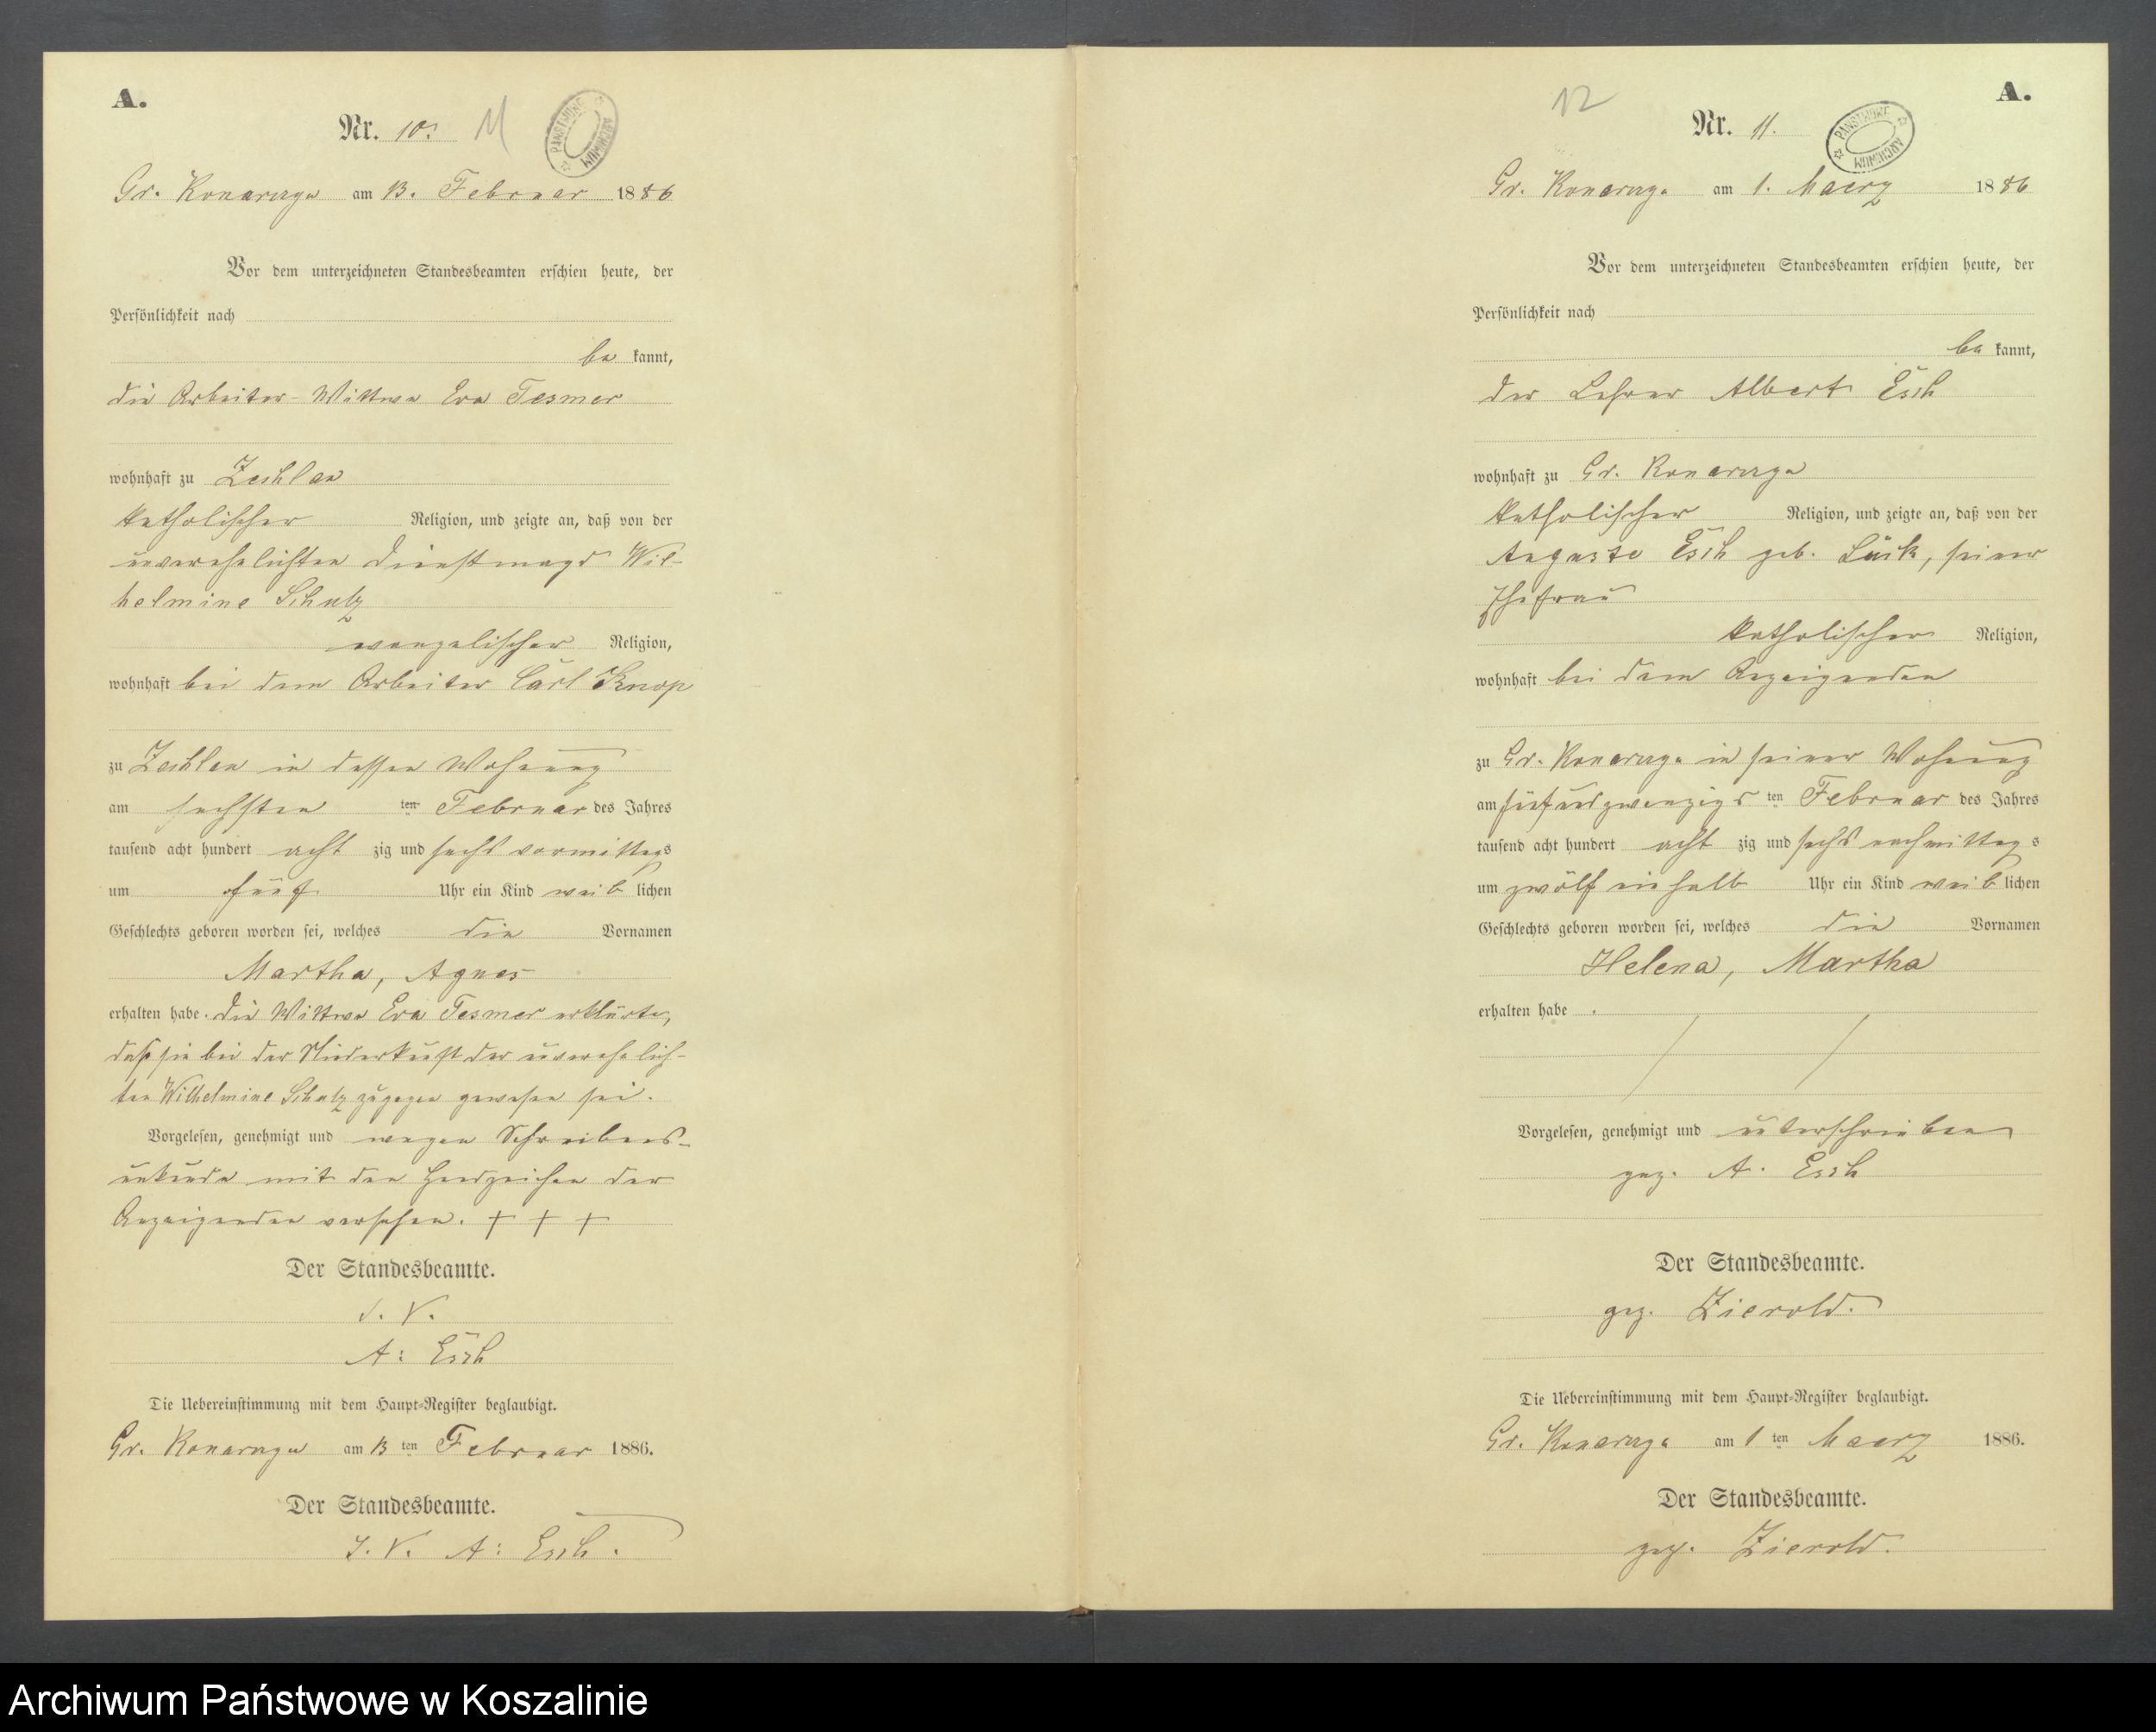 A.
Nr. 10. 11
PAŃSTWOWE ARCHIWUM
Gr. Konarczyn am 13. Februar 1886
Vor dem unterzeichneten Standesbeamten erschien heute, der
Persönlichkeit nach
be kannt,
die Arbeiter-Wittwe Eva Tesmer
wohnhaft zu Zechlau
katholischer Religion, und zeigte an, daß von der
unverehelichten Dienstmagd Wil-
helmine Schulz
evangelischer Religion,
wohnhaft bei dem Arbeiter Carl Knop
zu Zechlau in dessen Wohnung
am sechsten ten Februar des Jahres
tausend acht hundert acht zig und sechs vormittags
um fünf Uhr ein Kind weib lichen
Geschlechts geboren worden sei, welches die Vornamen
Martha, Agnes
erhalten habe. Die Wittwe Eva Tesmer erklärte,
daß sie bei der Niederkunft der unverehelich-
ten Wilhelmine Schulz zugegen gewesen sei.
Vorgelesen, genehmigt und wegen Schreibens-
unkunde mit den Handzeichen der
Anzeigenden versehen. + + +
Der Standesbeamte.
J. V.
A. Esch
Die Uebereinstimmung mit dem Haupt-Register beglaubigt.
Gr. Konarczyn am 13 ten Februar 1886.
Der Standesbeamte.
J. V. A. Esch.
12 A.
Nr. 11.
PAŃSTWOWE ARCHIWUM
Gr. Konarczyn am 1. Maerz 1886
Vor dem unterzeichneten Standesbeamten erschien heute, der
Persönlichkeit nach
be kannt,
der Lehrer Albert Esch
wohnhaft zu Gr. Konarczyn
katholischer Religion, und zeigte an, daß von der
Auguste Esch geb. Lück, seiner
Ehefrau
katholischer Religion,
wohnhaft bei dem Anzeigenden
zu Gr. Konarczyn in seiner Wohnung
am fünfundzwanzigs ten Februar des Jahres
tausend acht hundert acht zig und sechs nachmittags
um zwölf einhalb Uhr ein Kind weib lichen
Geschlechts geboren worden sei, welches die Vornamen
Helena, Martha
erhalten habe.
Vorgelesen, genehmigt und unterschrieben
gez. A. Esch
Der Standesbeamte.
gez. Zierold.
Die Uebereinstimmung mit dem Haupt-Register beglaubigt.
Gr. Konarczyn am 1 ten Maerz 1886.
Der Standesbeamte.
gez. Zierold.
Archiwum Państwowe w Koszalinie